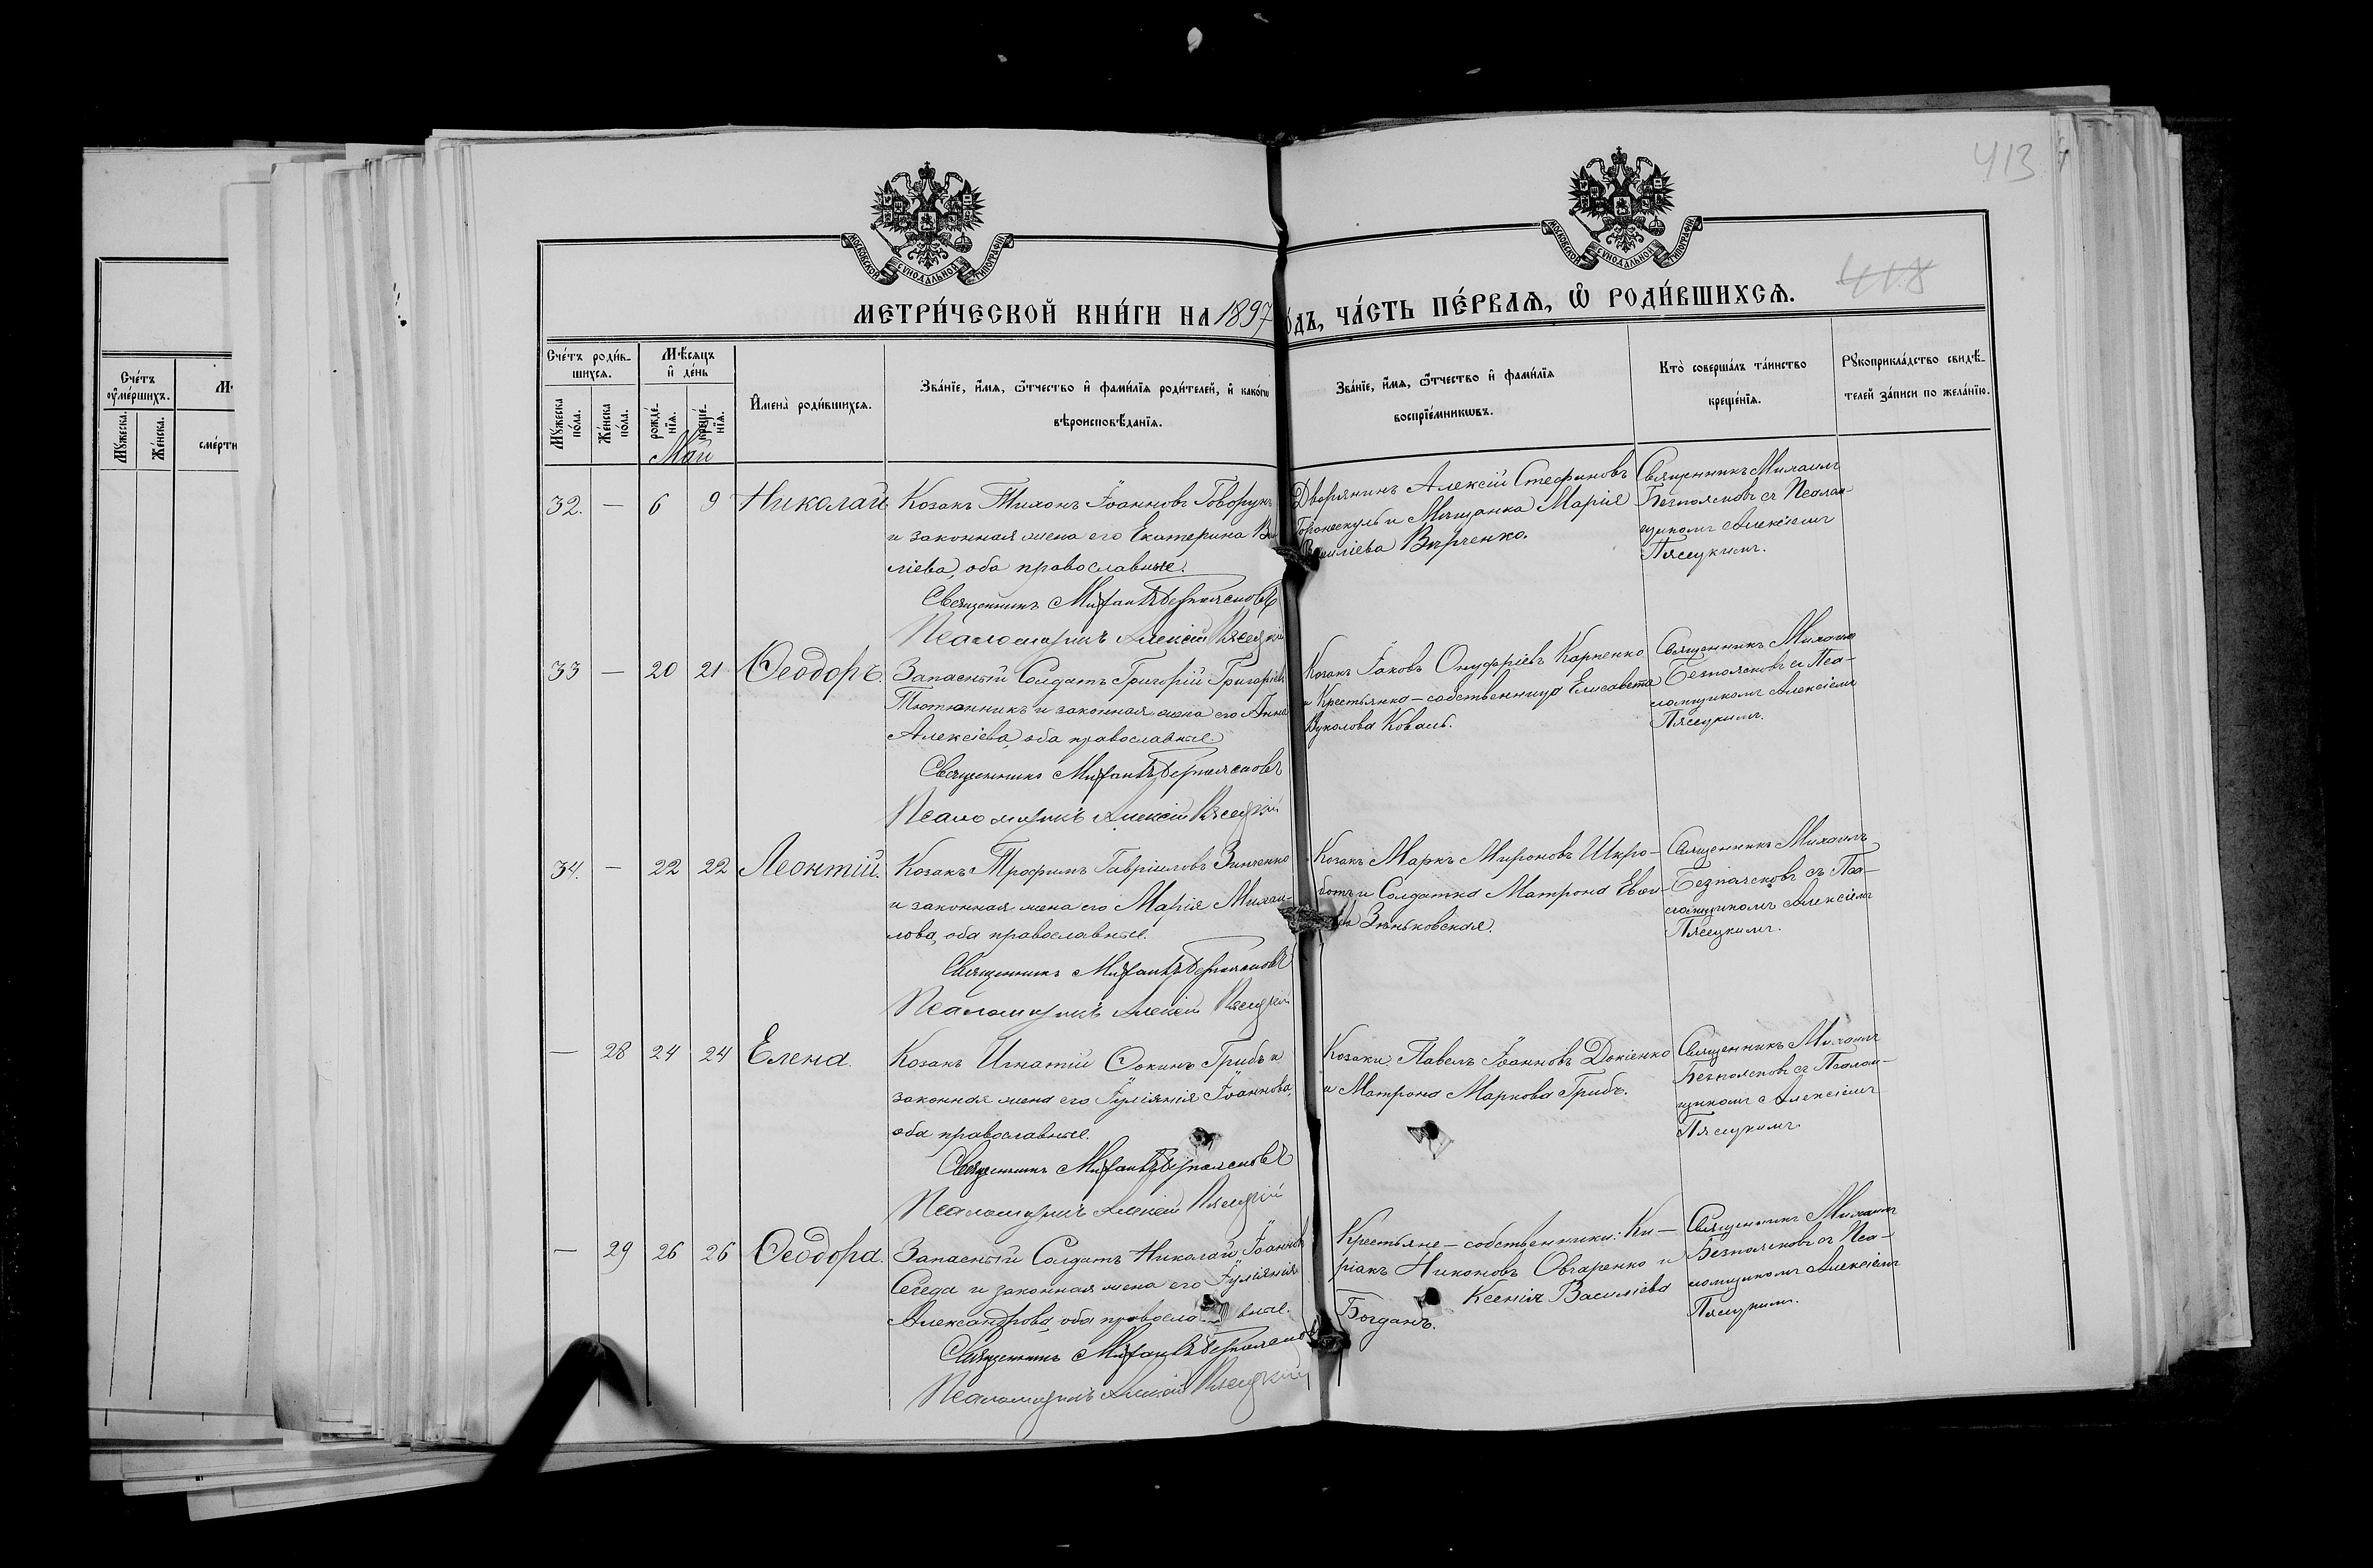 413
418
МОСКОВСКОЙ СѴНОДАЛЬНОЙ ТИПОГРАФІИ
МОСКОВСКОЙ СѴНОДАЛЬНОЙ ТИПОГРАФІИ
МЕТРИ́ЧЕСКОЙ КНИ́ГИ НА 1897 ГО́ДЪ, ЧА́СТЬ ПЕ́РВАѦ, Ѽ РОДИ́ВШИХСѦ.
Сче́тъ
ᲂу҆ме́ршихъ.
Мꙋ́жеска.
Же́нска.
сме́рти
Сче́тъ роди́в-
шихсѧ.
Мꙋ́жеска по́ла.
Же́нска по́ла.
Мѣ́сѧцъ
и҆ де́нь
рожде́-нїѧ.
креще́-нїѧ.
Май
И҆мена̀ роди́вшихсѧ.
Зва́нїе, и҆́мѧ, ѻ҆́тчество и҆ фами́лїѧ роди́телей, и҆ како́гѡ
вѣроисповѣ́данїѧ.
Зва́нїе, и҆́мѧ, ѻ҆́тчество и҆ фами́лїѧ
воспрїе́мникѡвъ.
Кто̀ соверша́лъ та́инство
креще́нїѧ.
Рꙋкоприкла́дство свидѣ́-
телей за́писи по жела́нїю.
32. — 6 9 Николай
Козакъ Тихонъ Іоанновъ Говорунъ
и законная жена его Екатерина Васи
ліева, оба православные.
Священникъ Михаилъ Безпоясковъ
Псаломщикъ Алексій Пясецкій
Дворянинъ Алексій Стефановъ
и Мѣщанка Марія
Василіева
Священникъ Михаилъ
Безпоясковъ съ Псалом-
щикомъ Алексіемъ
Пясецкимъ.
33 — 20 21 Ѳеодоръ.
Запасный Солдатъ Григорій Григоріевъ
Тютюнникъ и законная жена его Анна
Алексіева, оба православные
Священникъ Михаилъ Безпоясковъ
Псаломщикъ Алексій Пясецкій
Козакъ Іаковъ Онуфріевъ Карпенко
и Крестьянка-собственница Елисавета
Вуколова Коваль.
Священникъ Михаилъ
Безпоясковъ съ Пса-
ломщикомъ Алексіемъ
Пясецкимъ.
34. — 22 22 Леонтій.
Козакъ Трофимъ Гавріиловъ Зинченко
и законная жена его Марія Михаи-
лова, оба православные.
Священникъ Михаилъ Безпоясковъ
Псаломщикъ Алексій Пясецкій
Козакъ Маркъ Мироновъ Шкро-
ботъ и Солдатка Матрона
Зѣньковская.
Священникъ Михаилъ
Безпоясковъ съ Пса-
ломщикомъ Алексіемъ
Пясецкимъ.
— 28 24 24 Елена.
Козакъ Игнатій Ѳокинъ Грибъ и
законная жена его Іуліанія Іоаннова,
оба православные.
Священникъ Михаилъ Безпоясковъ
Псаломщикъ Алексій Пясецкій
Козаки: Павелъ Іоанновъ Докіенко
и Матрона Маркова Грибъ.
Священникъ Михаилъ
Безпоясковъ съ Псалом-
щикомъ Алексіемъ
Пясецкимъ.
— 29 26 26 Ѳеодора.
Запасный Солдатъ Николай Іоанновъ
Сегеда и законная жена его Іуліанія
Александрова, оба православные.
Священникъ Михаилъ Безпоясковъ
Псаломщикъ Алексій Пясецкій
Крестьяне-собственники: Ки-
ріакъ Никоновъ Овчаренко и
Ксенія Василіева
Богданъ.
Священникъ Михаилъ
Безпоясковъ съ Пса-
ломщикомъ Алексіемъ
Пясецкимъ.